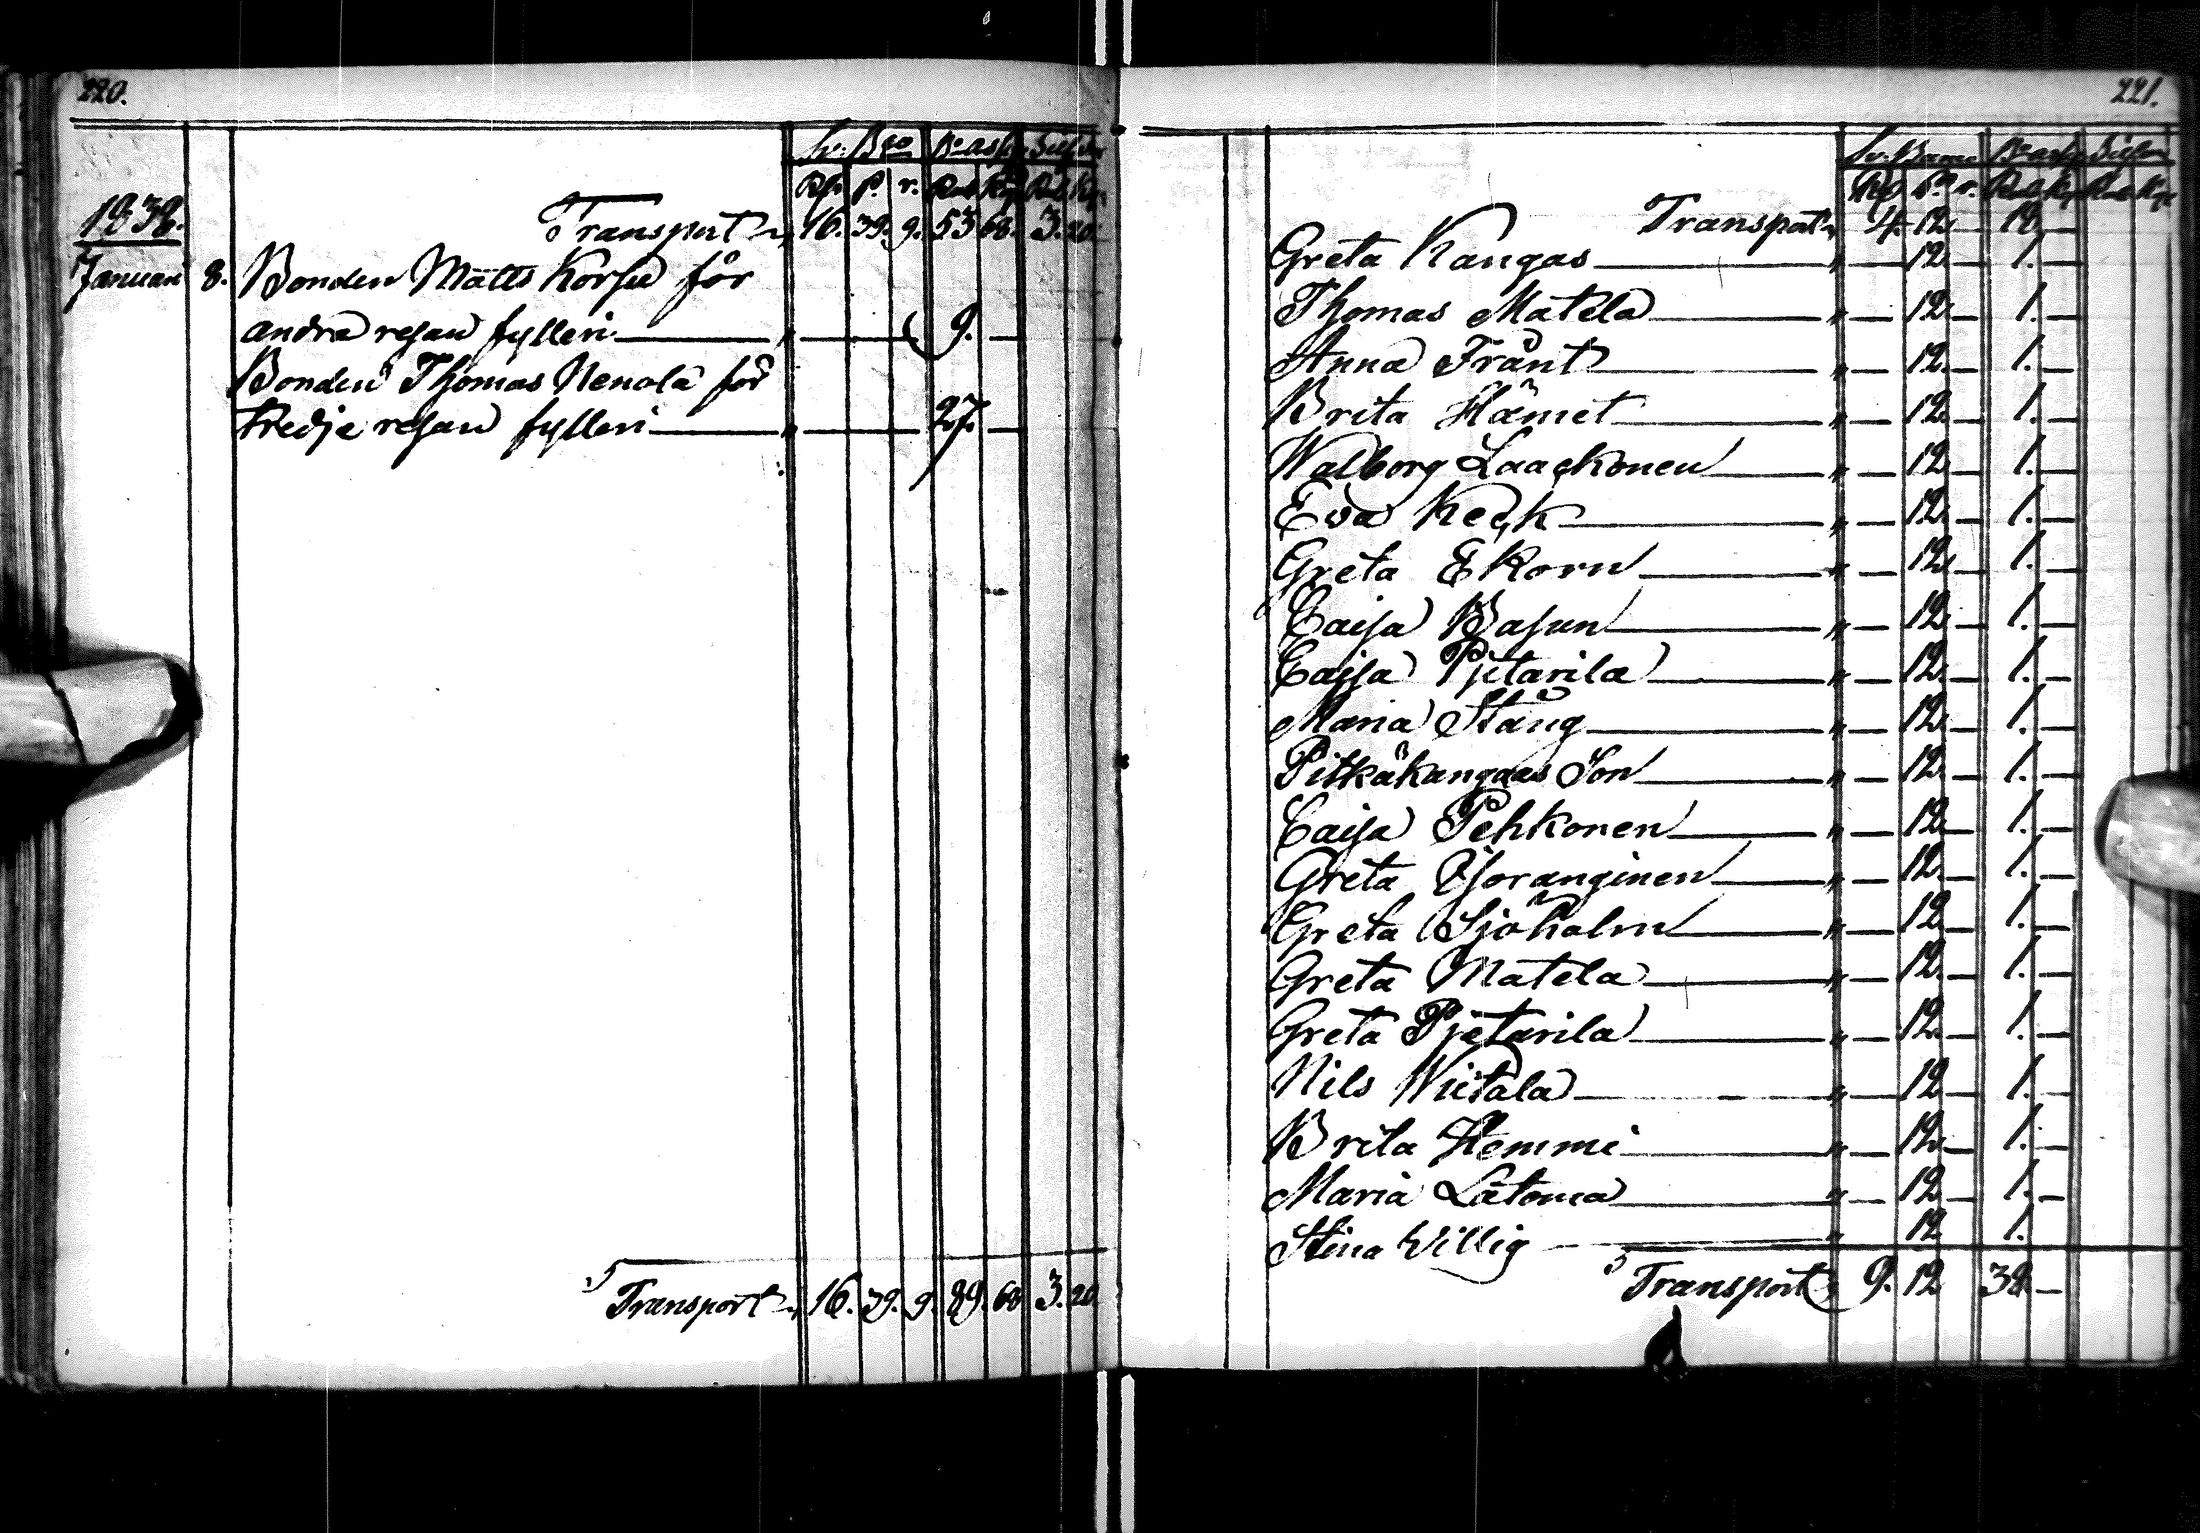 220.
Sv: Bco Bco ass. Silfver
Rs P. r. Rub Kop Rub Kop
1838.
Transport 16. 39. 9. 53 68. 3. 20
Januari 8. Bonden Matts Korsu för
andra resan fylleri — — 9. —
Bonden Thomas Nenola för
tredje resan fylleri — — 27. —
Transport 16. 39. 9. 89. 68 3. 20
221.
Sv: Banco Bco ass. Silfver
Transport 4. 12 18
Greta Kangas — 12 — 1. —
Thomas Matela — 12 — 1. —
Anna Frant — 12 — 1. —
Brita Hämet — 12 — 1. —
Walborg Laackonen — 12 — 1. —
Eva Keck — 12 — 1. —
Greta Ekorn — 12 — 1. —
Caisa Basun — 12 — 1. —
Caisa Pjetarila — 12 — 1. —
Maria Stång — 12 — 1. —
Pitkäkangas Son — 12 — 1. —
Caisa Pehkonen — 12 — 1. —
Greta Yjoranginen — 12 — 1. —
Greta Sjöholm — 12 — 1. —
Greta Matela — 12 — 1. —
Greta Pjetarila — 12 — 1. —
Nils Wiitala — 12 — 1. —
Brita Hemmi — 12 — 1. —
Maria Latoma — 12 — 1. —
Stina Willig — 12 1.
Transport 9. 12 38 —